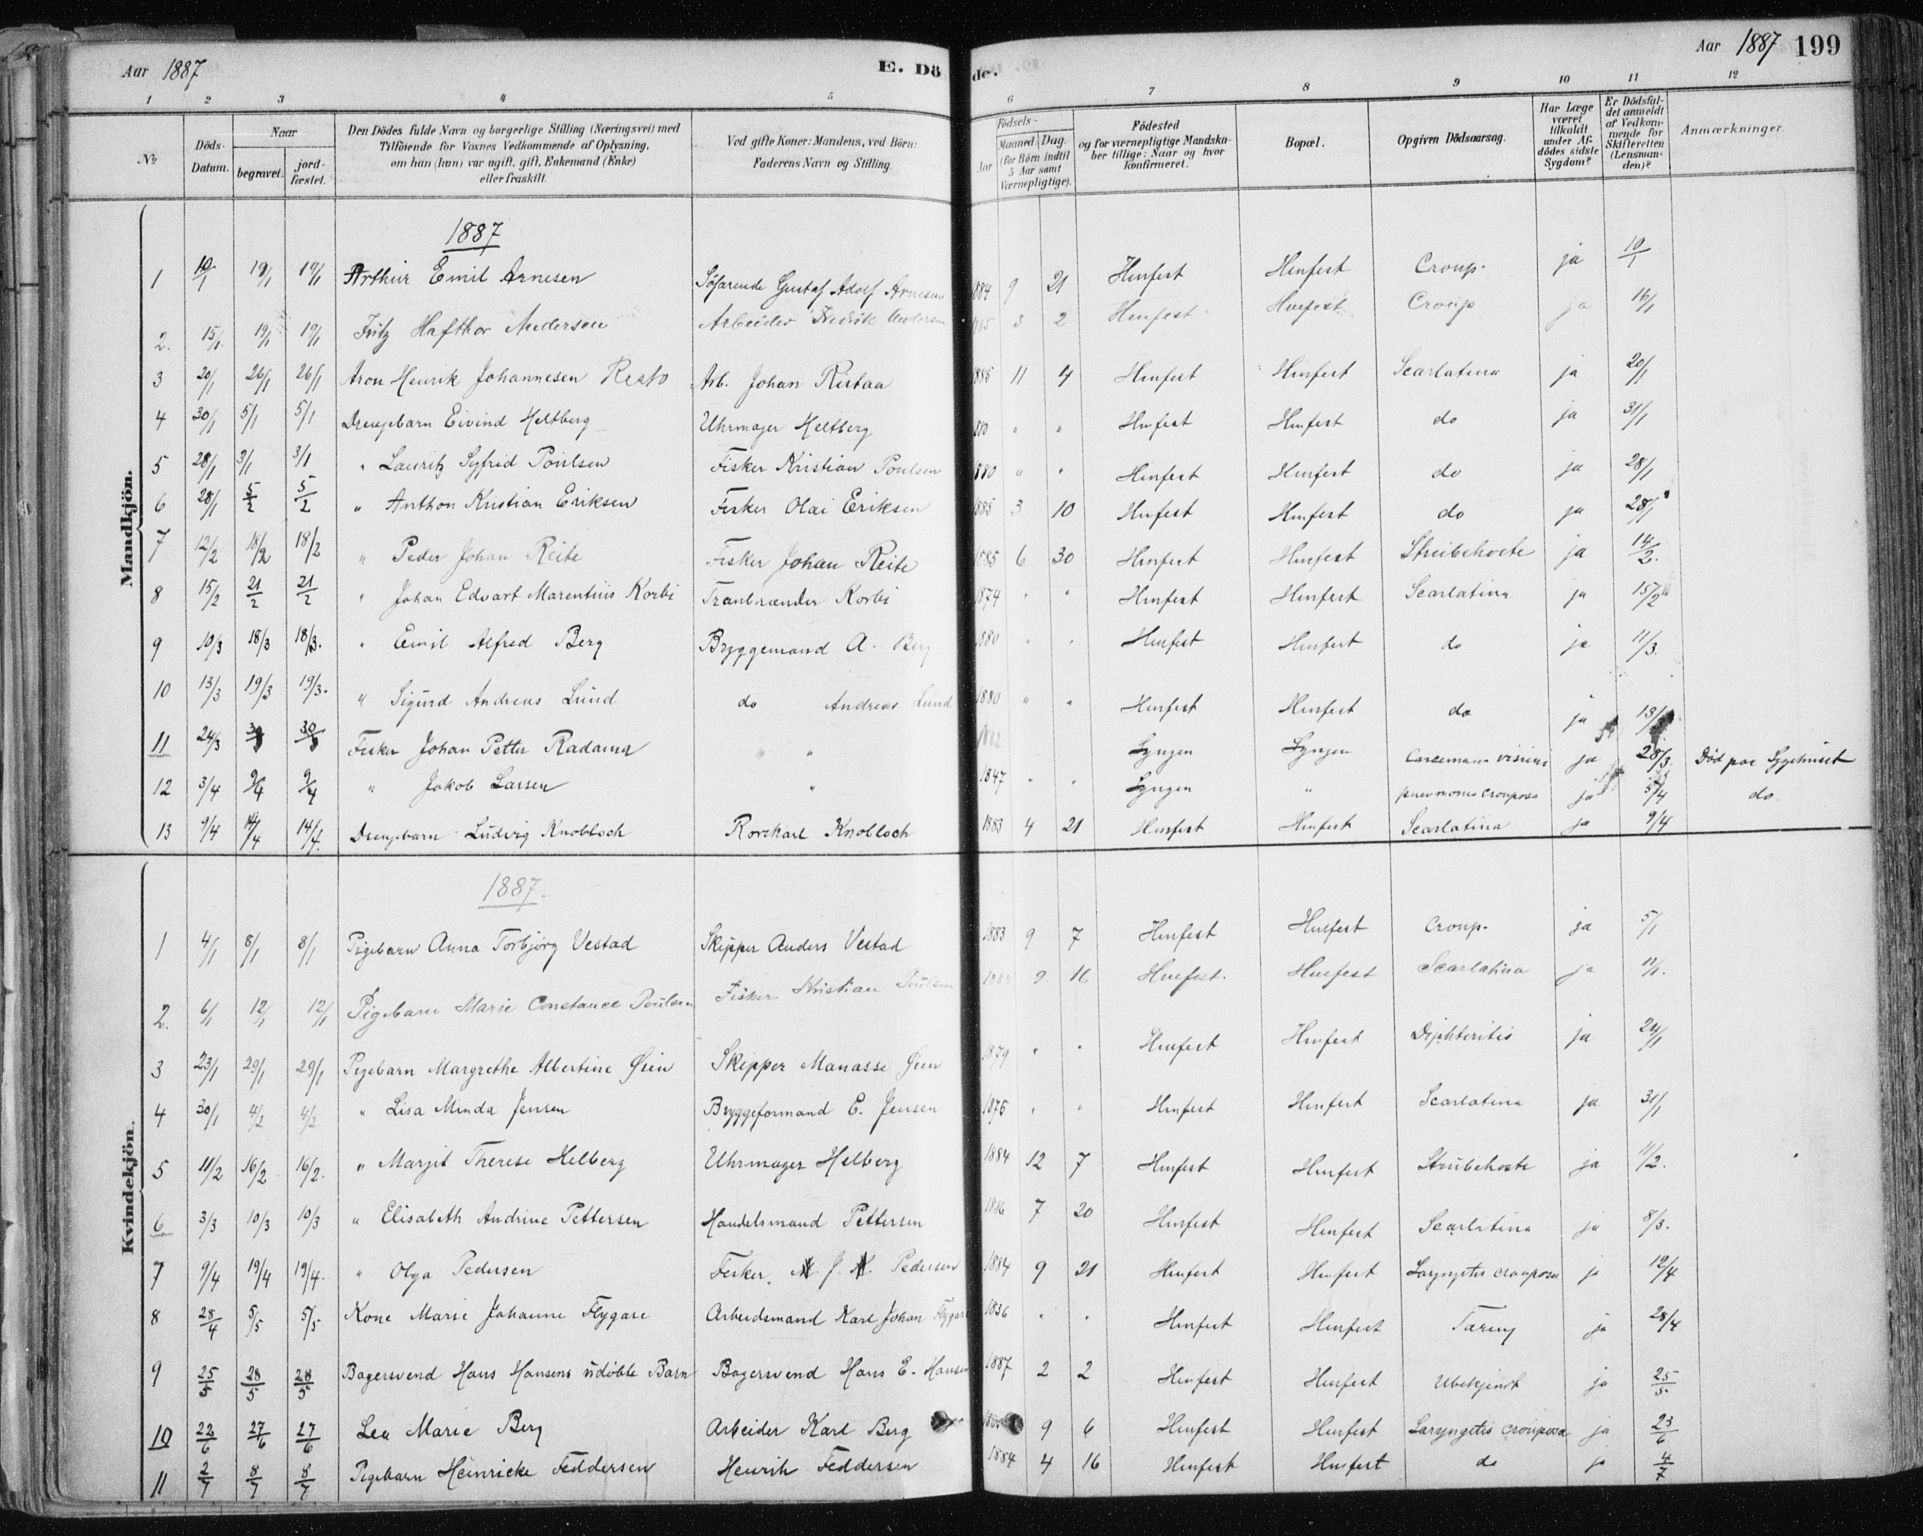 Aar 1887 E. Dö de. Aar 1887 199
1 2 3 4 5 6 7 8 9 10 11 12
No
Döds-Datum.
Naar
begravet.
jord-fæstet.
Den Dödes fulde Navn og borgerlige Stilling (Næringsvei) med
Tilföiende for Voxnes Vedkommende af Oplysning,
om han (hun) var ugift, gift, Enkemand (Enke)
eller fraskilt.
Ved gifte Koner: Mandens, ved Börn:
Faderens Navn og Stilling.
Födsels-
Aar
Maaned Dag
(for Börn indtil
5 Aar samt
Værnepligtige).
Födested
og for værnepligtige Mandska-
ber tillige: Naar og hvor
konfirmeret.
Bopæl.
Opgiven Dödsaarsag.
Har Læge
været
tilkaldt
under Af-
dödes sidste
Sygdom?
Er Dödsfal-
det anmeldt
af Vedkom-
mende for
Skifteretten
(Lensman-
den)?
Anmærkninger.
Mandkjön.
1887
1 10/1 19/1 19/1 Arthur Emil Arnesen Söfarende Gustaf Adolf Arnesen 1884 9 21 Hmfest Hmfest Croup. ja 10/1
2. 15/1 19/1 19/1 Fritz Hafthor Andersen Arbeider Fredrik Andersen 1885 3 2 Hmfest Hmfest Croup ja 16/1
3 20/1 26/1 26/1 Aron Henrik Johannesen Risto Arb. Johan Ristaa 1885 11 4 Hmfest Hmfest Scarlatina ja 20/1
4 30/1 5/1 5/1 Drengebarn Eivind Heltberg Uhrmager Heltberg 1880 " " Hmfest Hmfest do ja 31/1
5 28/1 3/1 3/1 " Lauritz Sygfrid Poulsen Fisker Kristian Poulsen 1880 " " Hmfest Hmfest do ja 28/1
6 28/1 5/2 5/2 " Anthon Kristian Eriksen Fisker Olai Eriksen 1885 3 10 Hmfest Hmfest do ja 28/1
7 12/2 18/2 18/2 " Peder Johan Reite Fisker Johan Reite 1885 6 30 Hmfest Hmfest Strubehoste ja 14/2.
8 15/2 21/2 21/2 " Johan Edvart Marentius Korbi Tranbrænder Korbi 1874 " " Hmfest Hmfest Scarlatina ja 15/2
9 10/3 18/3 18/3. " Emil Alfred Berg Bryggemand A. Berg 1880 " " Hmfest Hmfest do ja 11/3.
10 13/3 19/3 19/3. " Sigurd Andreas Lund do Andreas Lund 1880 " " Hmfest Hmfest do ja 13/
11 24/3 30/3 Fisker Johan Petter Radama " " Lyngen Lyngen ja 28/3. Död paa Sygehuset
12 3/4 9/4 9/4 " Jakob Larsen " 1847 " " Lyngen " pneumonia crouposa ja 5/4 do.
13 9/4 14/4 14/4. Drengebarn Ludvig Knobloch Rorskarl Knobloch 1883 4 21 Hmfest Hmfest Scarlatina ja 9/4
Kvindekjön.
1887.
1 4/1 8/1 8/1 Pigebarn Anna Torbjörg Vestad Skipper Anders Vestad 1883 9 7 Hmfest Hmfest Croup. ja 5/1
2. 6/1 12/1 12/1 Pigebarn Marie Constance Poulsen Fisker Kristian Poulsen 9. 16 Hmfest. Hmfest Scarlatina ja 11/1.
3 23/1 29/1 29/1 Pigebarn Margrethe Albertine Öien Skipper Manasse Öien " " Hmfest Hmfest Diphteritis ja 24/1
4 30/1 4/2 4/2 " Lisa Minda Jensen Bryggeformand E. Jensen 1875 " " Hmfest Hmfest Scarlatina ja 31/1
5 11/2 16/2 16/2. " Marjit Therese Helberg Uhrmager Helberg 1884 12 7 Hmfest Hmfest Strubehoste ja 11/2.
6 3/3 10/3 10/3 " Elisabeth Andrine Pettersen Handelsmand Pettersen 7 20 Hmfest Hmfest Scarlatina ja 8/3.
7 9/4 19/4 19/4. " Olga Pedersen Fisker. J. Pedersen 1884 9 21 Hmfest Hmfest Laryngitis crouposa ja 12/4
8 28/4 5/5 5/5 Kone Marie Johanne Flygare Arbeidsmand Karl Johan Flygare 1836 " " Hmfest Hmfest Tæring ja 28/4
9 25/5 28/5 28/5 Bagersvend Hans Hansens udöbte Barn Bagersvend Hans E. Hansen 1887 2 2 Hmfest Hmfest Ubekjendt ja 25/5.
10 22/6 27/6 27/6 Lea Marie Berg Arbeider Karl Berg 9 6 Hmfest Hmfest Laryngitis crouposa ja 23/6
11 2/7 8/7 8/7 Pigebarn Heinricke Feddersen Henrik Feddersen 1884 4 16 Hmfest Hmfest do ja 4/7